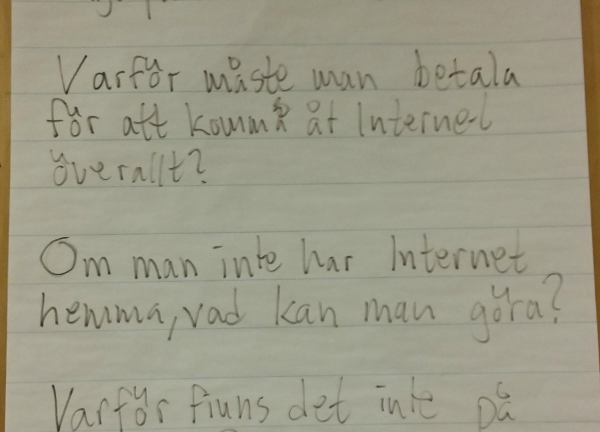 Varför måste man betala
för att komma åt Internet
överallt?
Om man inte har Internet
hemma, vad kan man göra?
Varför finns det inte på